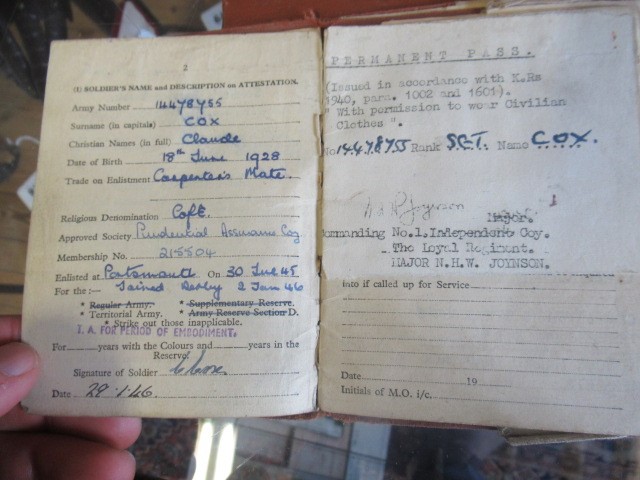 2
(I) SOLDIER'S NAME and DESCRIPTION on ATTESTATION.
Army Number 14478755
Surname (in capitals) COX
Christian Names (in full) Claude
Date of Birth 18th June 1928
Trade on Enlistment Carpenter's Mate.
Religious Denomination C of E.
Approved Society Prudential Assurance Coy
Membership No. 215504
Enlisted at Portsmouth On 30 Jul 45
For the :— Joined Derby 2 Jan 46
* Regular Army. * Supplementary Reserve.
* Territorial Army. * Army Reserve Section D.
* Strike out those inapplicable.
T.A. FOR PERIOD OF EMBODIMENT.
For years with the Colours and years in the
Reserve.
Signature of Soldier C Cox.
Date 29.1.46.
PERMANENT PASS.
(Issued in accordance with K.Rs
1940, para. 1002 and 1601).
" With permission to wear Civilian
Clothes ".
No 14478755 Rank SGT. Name COX.
Joynson
Major.
Commanding No.1, Independent Coy.
The Loyal Regiment.
MAJOR N.H.W. JOYNSON.
into if called up for Service
Date 19
Initials of M.O. i/c.